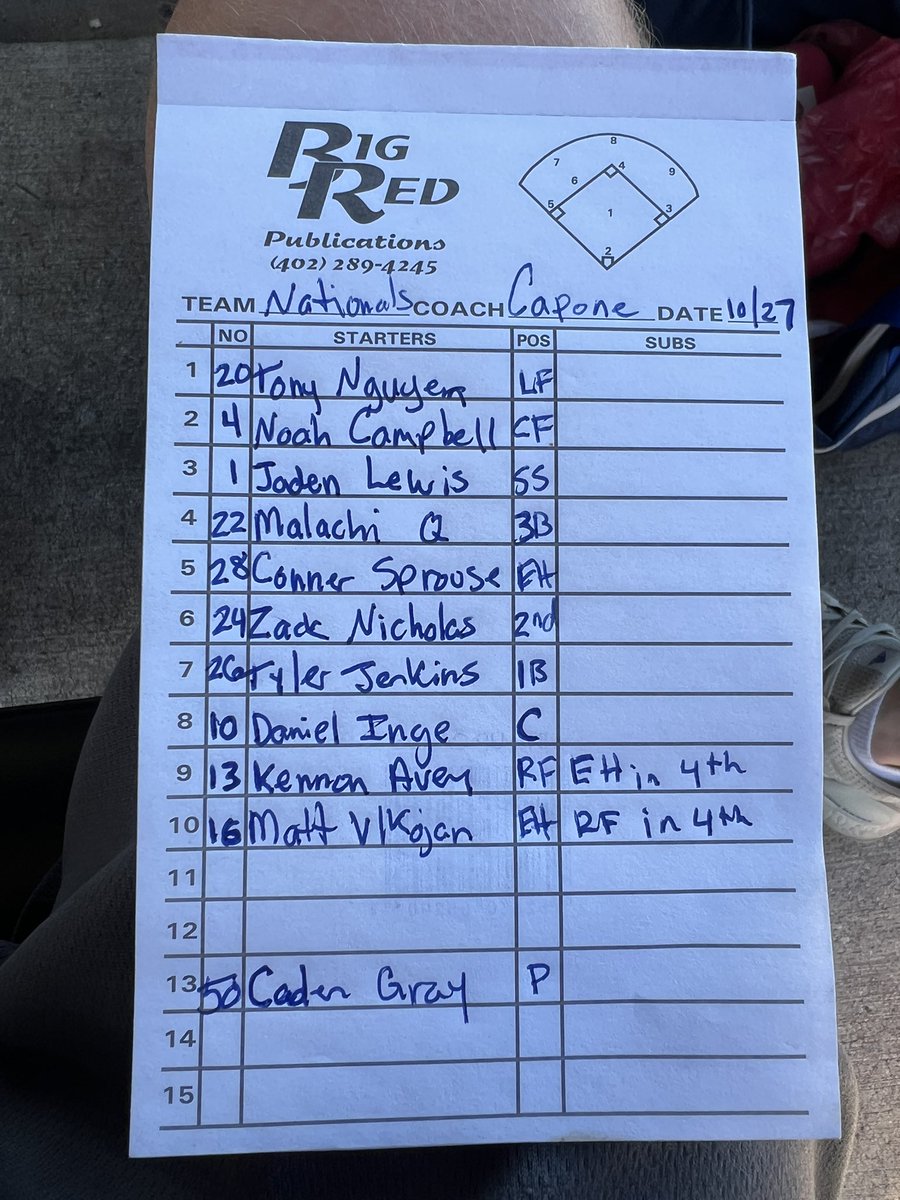 BIG RED
Publications
(402) 289-4245
8
7 4 9
6
5 1 3
2
TEAM Nationals COACH Capone DATE 10/27
NO STARTERS POS SUBS
1 20 Tony Nguyen LF
2 4 Noah Campbell CF
3 1 Jaden Lewis SS
4 22 Malachi Q 3B
5 28 Conner Sprouse EH
6 24 Zack Nicholas 2nd
7 26 Tyler Jenkins 1B
8 10 Daniel Inge C
9 13 Kennon Avey RF EH in 4th
10 16 Matt Vlkojan EH RF in 4th
11
12
13 50 Caden Gray P
14
15